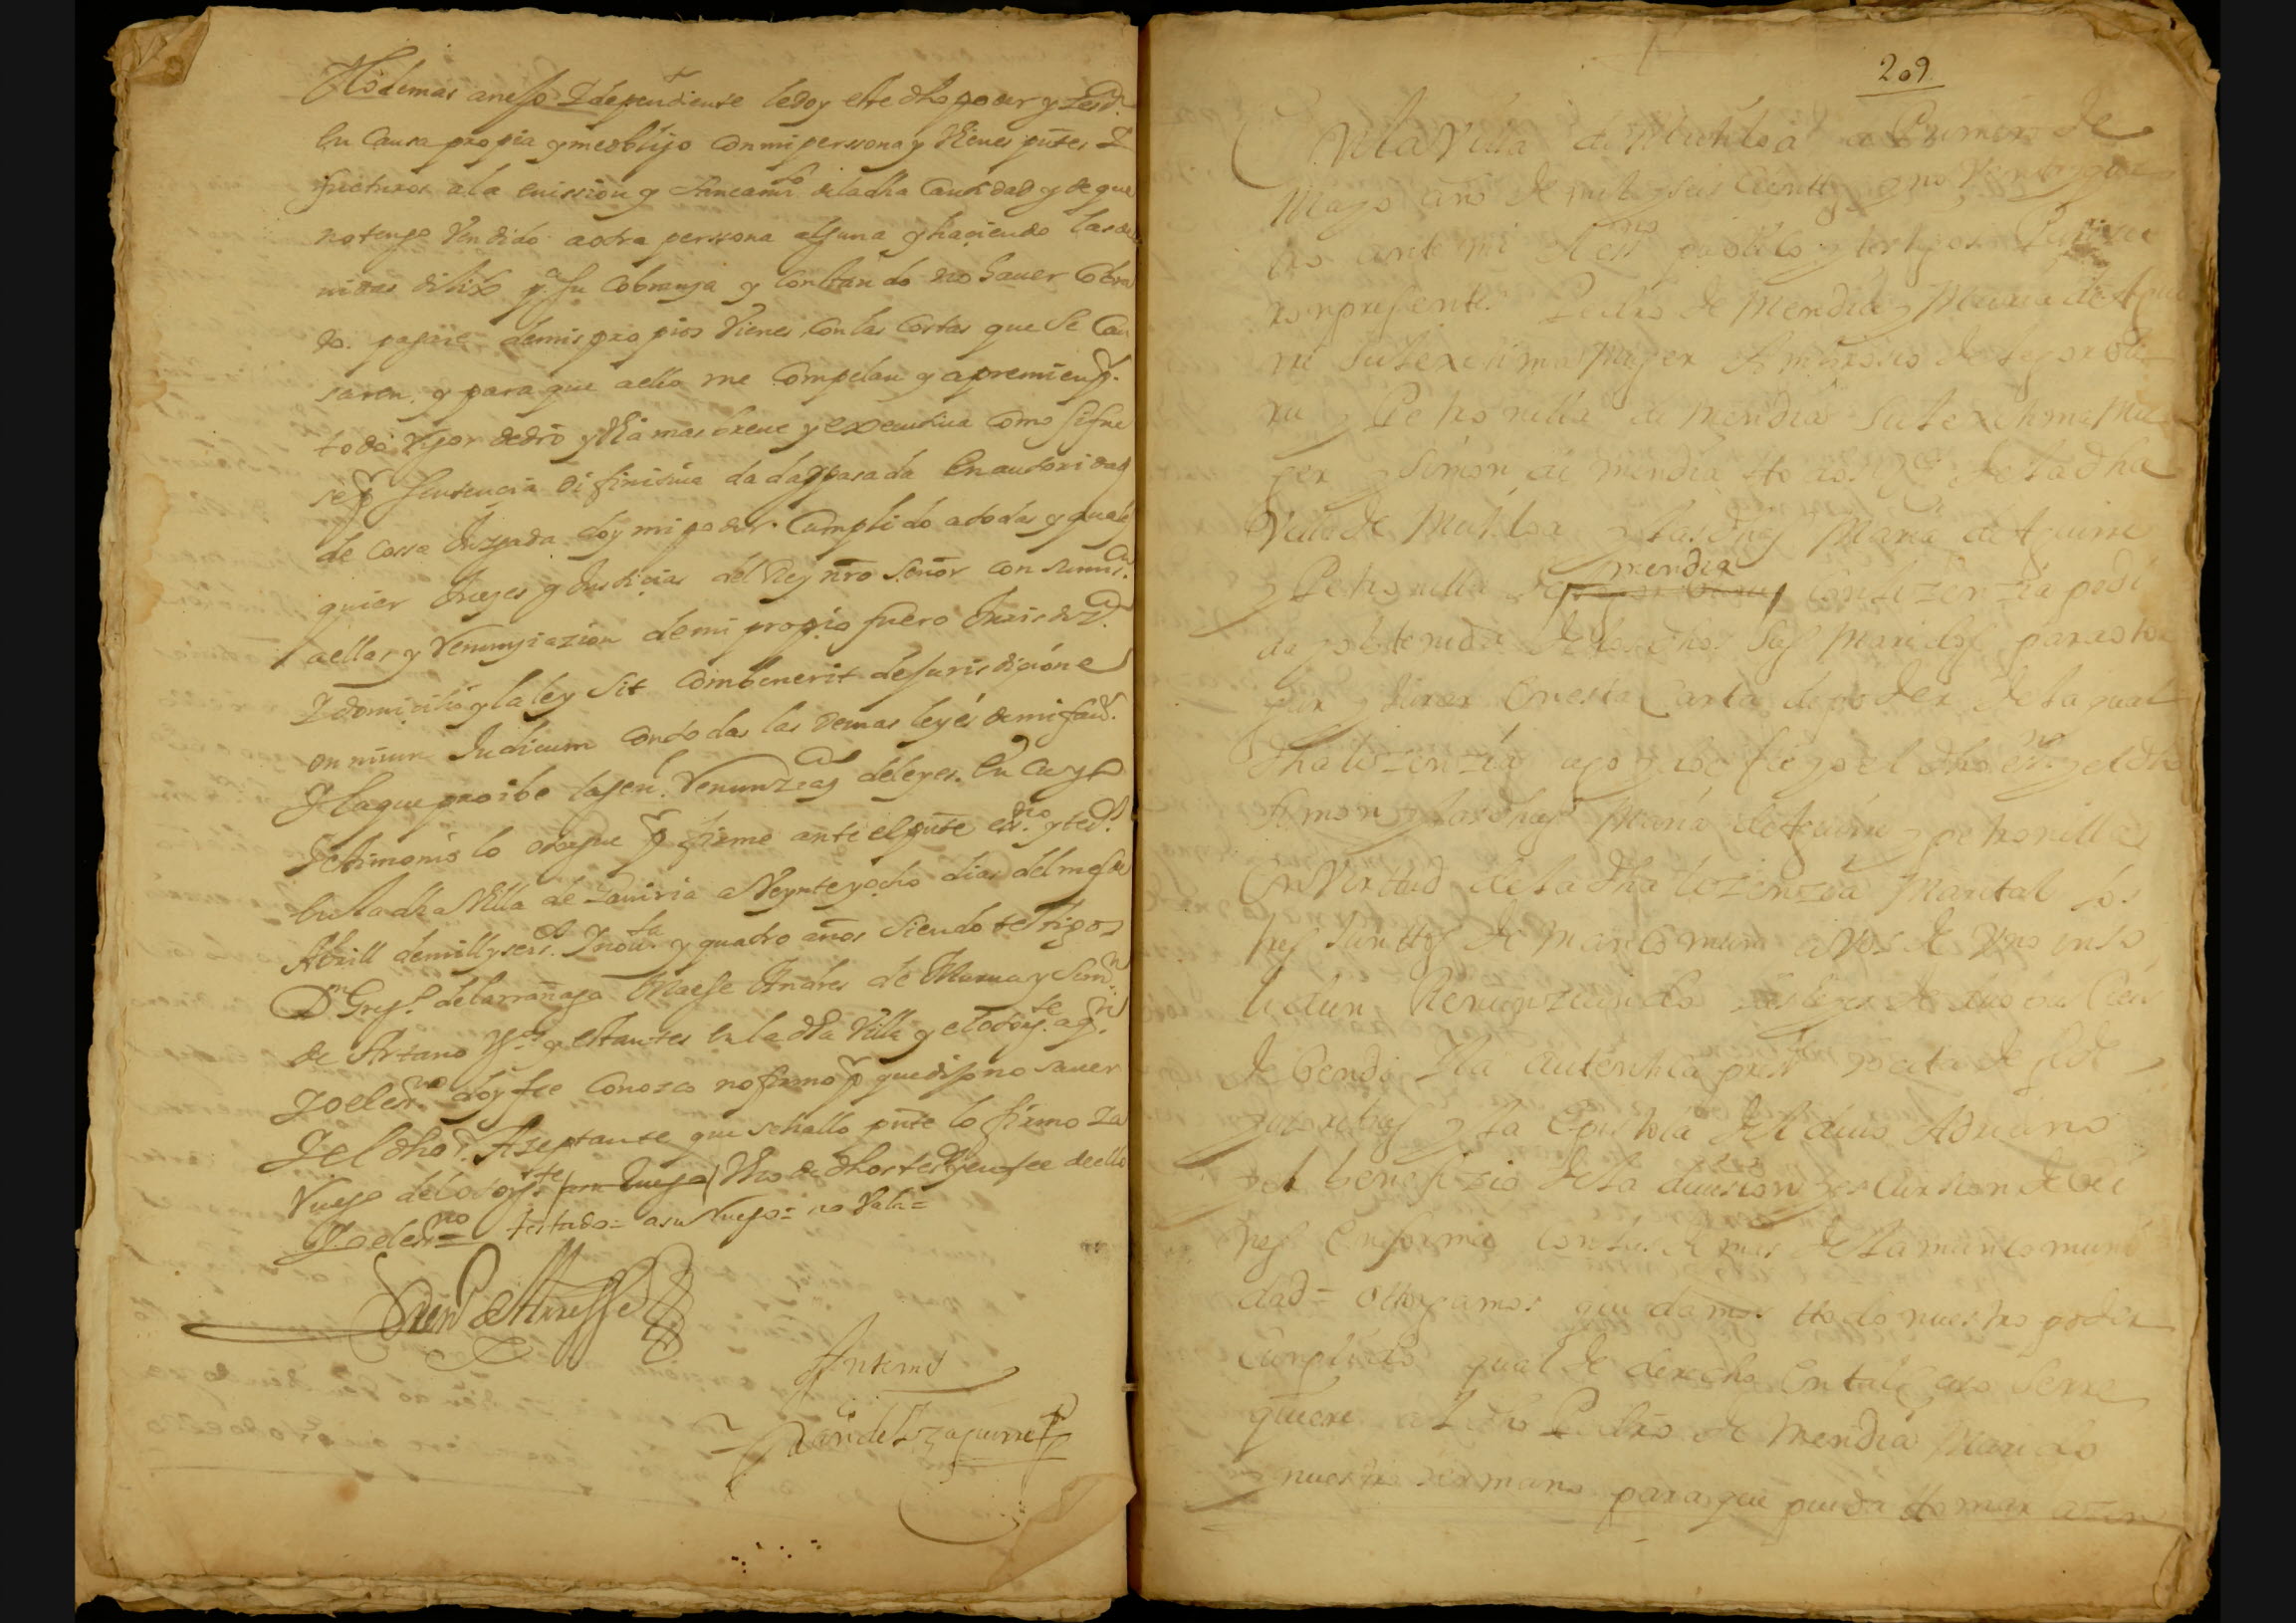 Y lo demas anejo Y dependiente le doy este dho poder y zesⁿ
en Causa propia y me obligo con mi persona y Vienes pntes Y
futuros a la evission y saneamᵗᵒ de la dha Cantidad y de que
no tengo Vendido a otra persona alguna y haciendo las de
vidas dilixˢ pᵃ su cobranza y constando no haver Cobra
do pagare de mis propios Vienes con las Costas que se Cau
saren y para que a ello me compelan y apremien
todo rigor de dro y Via mas breve y executiva como si fue
se sentencia difinitiva dada y pasada en autoridad
de cossa Juzgada doy mi poder Cumplido a todas y quales
quier Juezes y Justicias del Rey nro señor con sumisⁿ
a ellas y Renunziazion de mi propio fuero Jurisdiⁿ
Y domicilio y la ley sit combenerit de Jurisdicione
onnium Judicum con todas las demas leyes de mi favʳ
Y la que proibe la genˡ Renunziaⁿ de leyes. En Cuyo
Testimonio lo otorgue y firme ante el pnte esⁿᵒ y tesˢ
En la dha Villa de Zauivia a Veynte y ocho dias del mes de
Abrill de mill y seisᵒˢ y nobᵗᵃ y quatro años siendo testigos
Dⁿ Gregᵒ de Larrañaga Maese Andres de Murua y Simⁿ
de Artano Vᵒˢ y estantes en la dha Villa y el otorgᵗᵉ aqⁿ
Yo el esⁿᵒ doy fee Conozco no firmo y que dijo no saver
Y el dho Azeptante que se hallo pnte lo firmo Y a
Ruego del otorgᵗᵉ Uno de dhos testigos en fee de ello
Yo el esⁿᵒ = testado = a su Ruego = no Vala =
Ante mi
Juan de Yzaguirre
209
En la Villa de Mutiloa a Primero de
Mayo año de mill y seis Cientos y noventa y qua
tro ante mi el esⁿᵒ publico y testigos Pare
ron presentes Pedro de Mendia y Maria de Agui
rre su lexitima Muger
y Petronilla de Mendia su lexitima Mu
ger y Simon de Mendia ttodos Vᵒˢ de la dha
Villa de Mutiloa y las dhas Maria de Aguirre
mendia
y Petronilla de con lizenzia pedi
da y obtenida de los dhos sus Maridos para otor
gar y Jurar en esta Carta de poder de la qual
dha lizenzia yo doy fee yo el dho esⁿᵒ y el dho
Simon y las dhas Maria de Aguirre y petronilla
En Virttud de la dha lizenzia Marital to
dos Junttos de mancomun a Vos de Uno inso
lidun Renunziando las leyes de duobus Reis
de bendi Y la autentica presente ocita de fide
jusoribus y la Epistola del divo Adriano
y el benefizio de la division y escursion de Vie
nes en forma con las demas de la mancomuni
dad = ottorgamos que damos ttodo nuestro poder
Cumplido qual de derecho en tal caso se rre
quiere a dho Pedro de Mendia Marido
y nuestro hermano para que pueda ttomar a